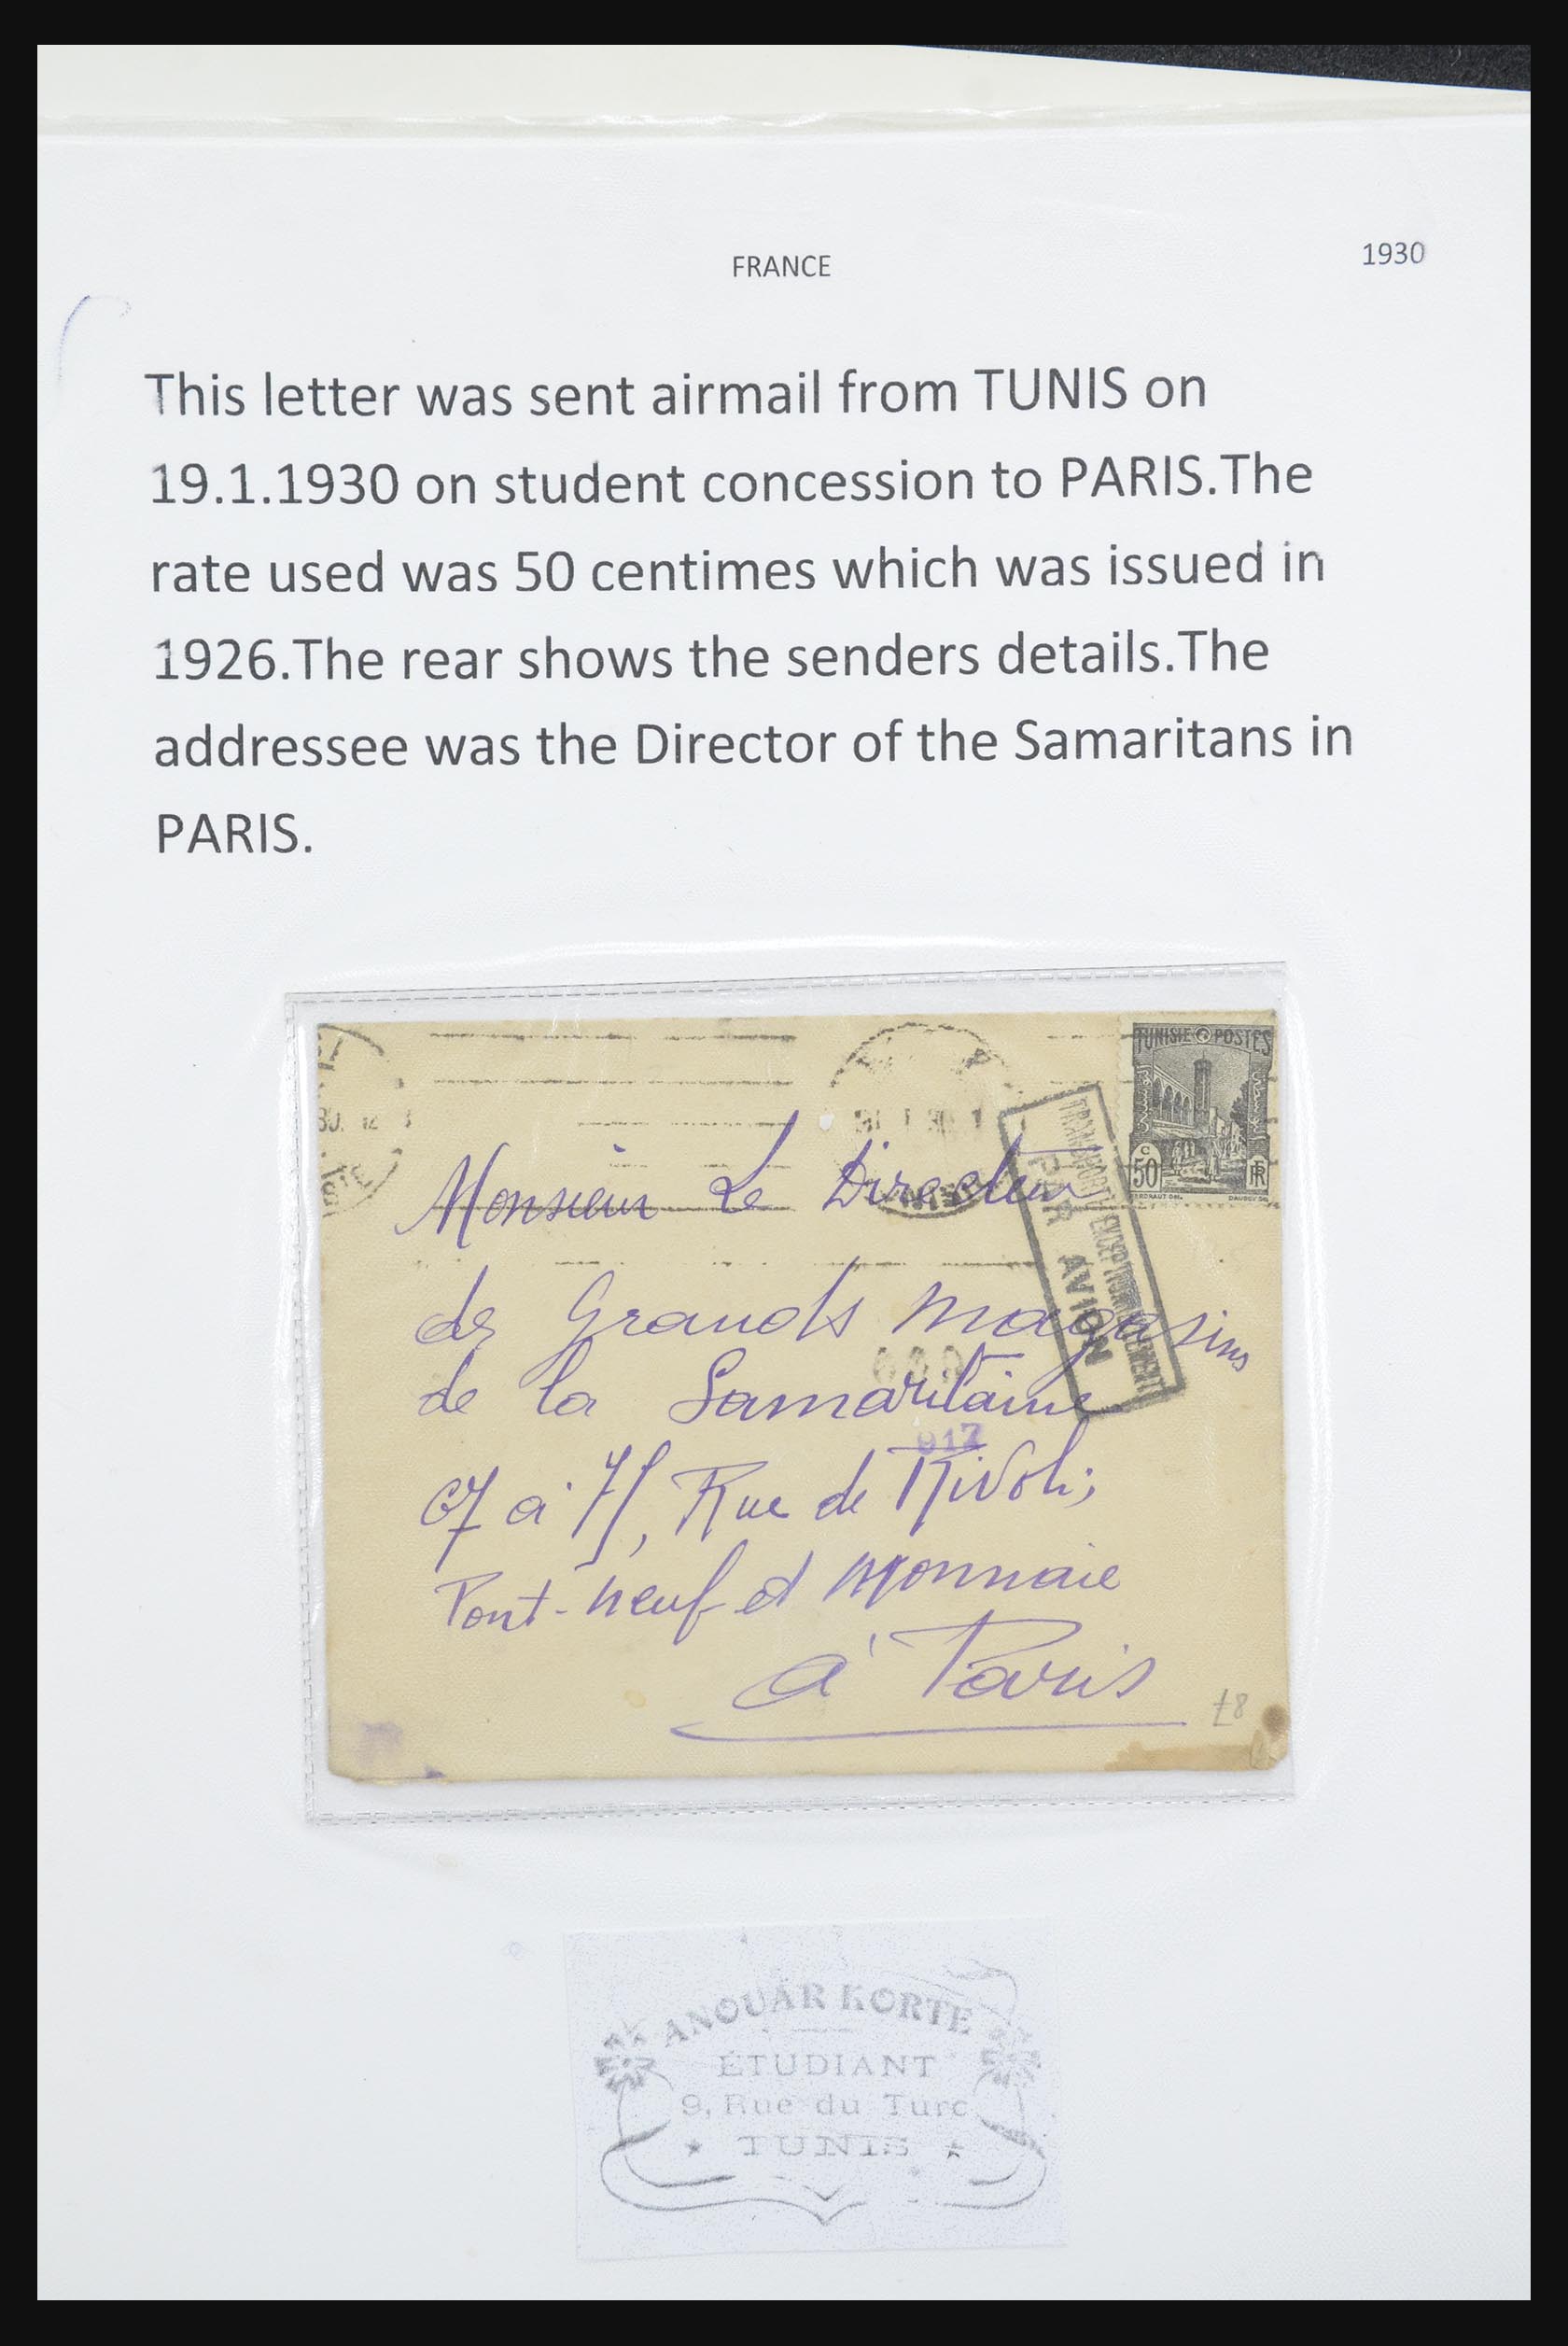 FRANCE
1930
This letter was sent airmail from TUNIS on
19.1.1930 on student concession to PARIS.The
rate used was 50 centimes which was issued in
1926.The rear shows the senders details.The
addressee was the Director of the Samaritans in
PARIS.
TUNISIE POSTES
50
C
RF
TRANSPORTÉ EXCEPTIONNELLEMENT
PAR AVION
Monsieur Le Directeur
des Grands Magasins
de la Samaritaine
917
67 à 75, Rue de Rivoli;
Pont-neuf et Monnaie
à Paris
£8
ANOUAR KORTE
ÉTUDIANT
9, Rue du Turc
TUNIS